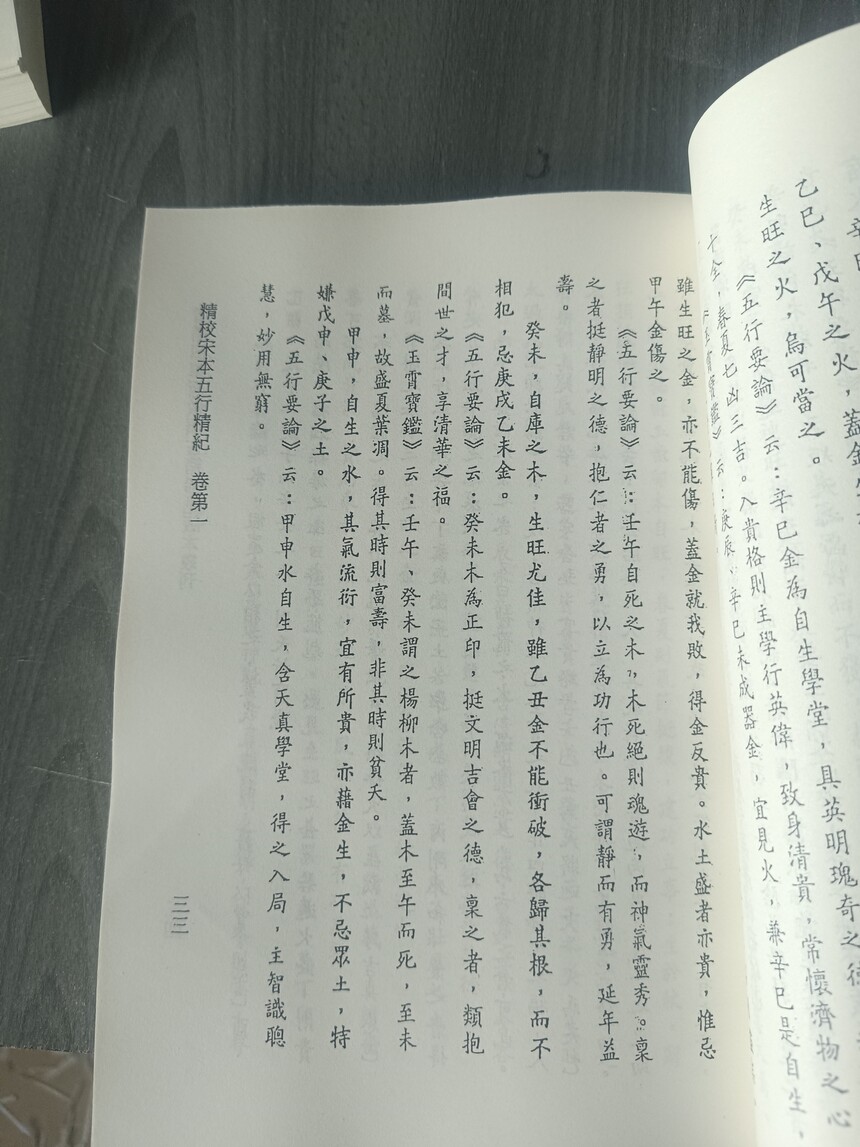 乙巳、戊午之火，蓋金
生旺之火，烏可當之。
《五行要論》云：辛巳金為自生學堂，具英明瑰奇之德
七全，春夏七凶三吉。入貴格則主學行英偉，致身清貴，常懷濟物之心
云：庚辰、辛巳未成器金，宜見火，兼辛巳是自生，
雖生旺之金，亦不能傷，蓋金就我敗，得金反貴。水土盛者亦貴，惟忌
甲午金傷之。
《五行要論》云：壬午自死之木，木死絕則魂遊，而神氣靈秀。稟
之者挺靜明之德，抱仁者之勇，以立為功行也。可謂靜而有勇，延年益
壽。
癸未，自庫之木，生旺尤佳，雖乙丑金不能衝破，各歸其根，而不
相犯，忌庚戌乙未金。
《五行要論》云：癸未木為正印，挺文明吉會之德，稟之者，類抱
間世之才，享清華之福。
《玉霄寶鑑》云：壬午、癸未謂之楊柳木者，蓋木至午而死，至未
而墓，故盛夏葉凋。得其時則富壽，非其時則貧夭。
甲申，自生之水，其氣流衍，宜有所貴，亦藉金生，不忌眾土，特
嫌戊申、庚子之土。
《五行要論》云：甲申水自生，含天真學堂，得之入局，主智識聰
慧，妙用無窮。
精校宋本五行精紀　卷第一
三三